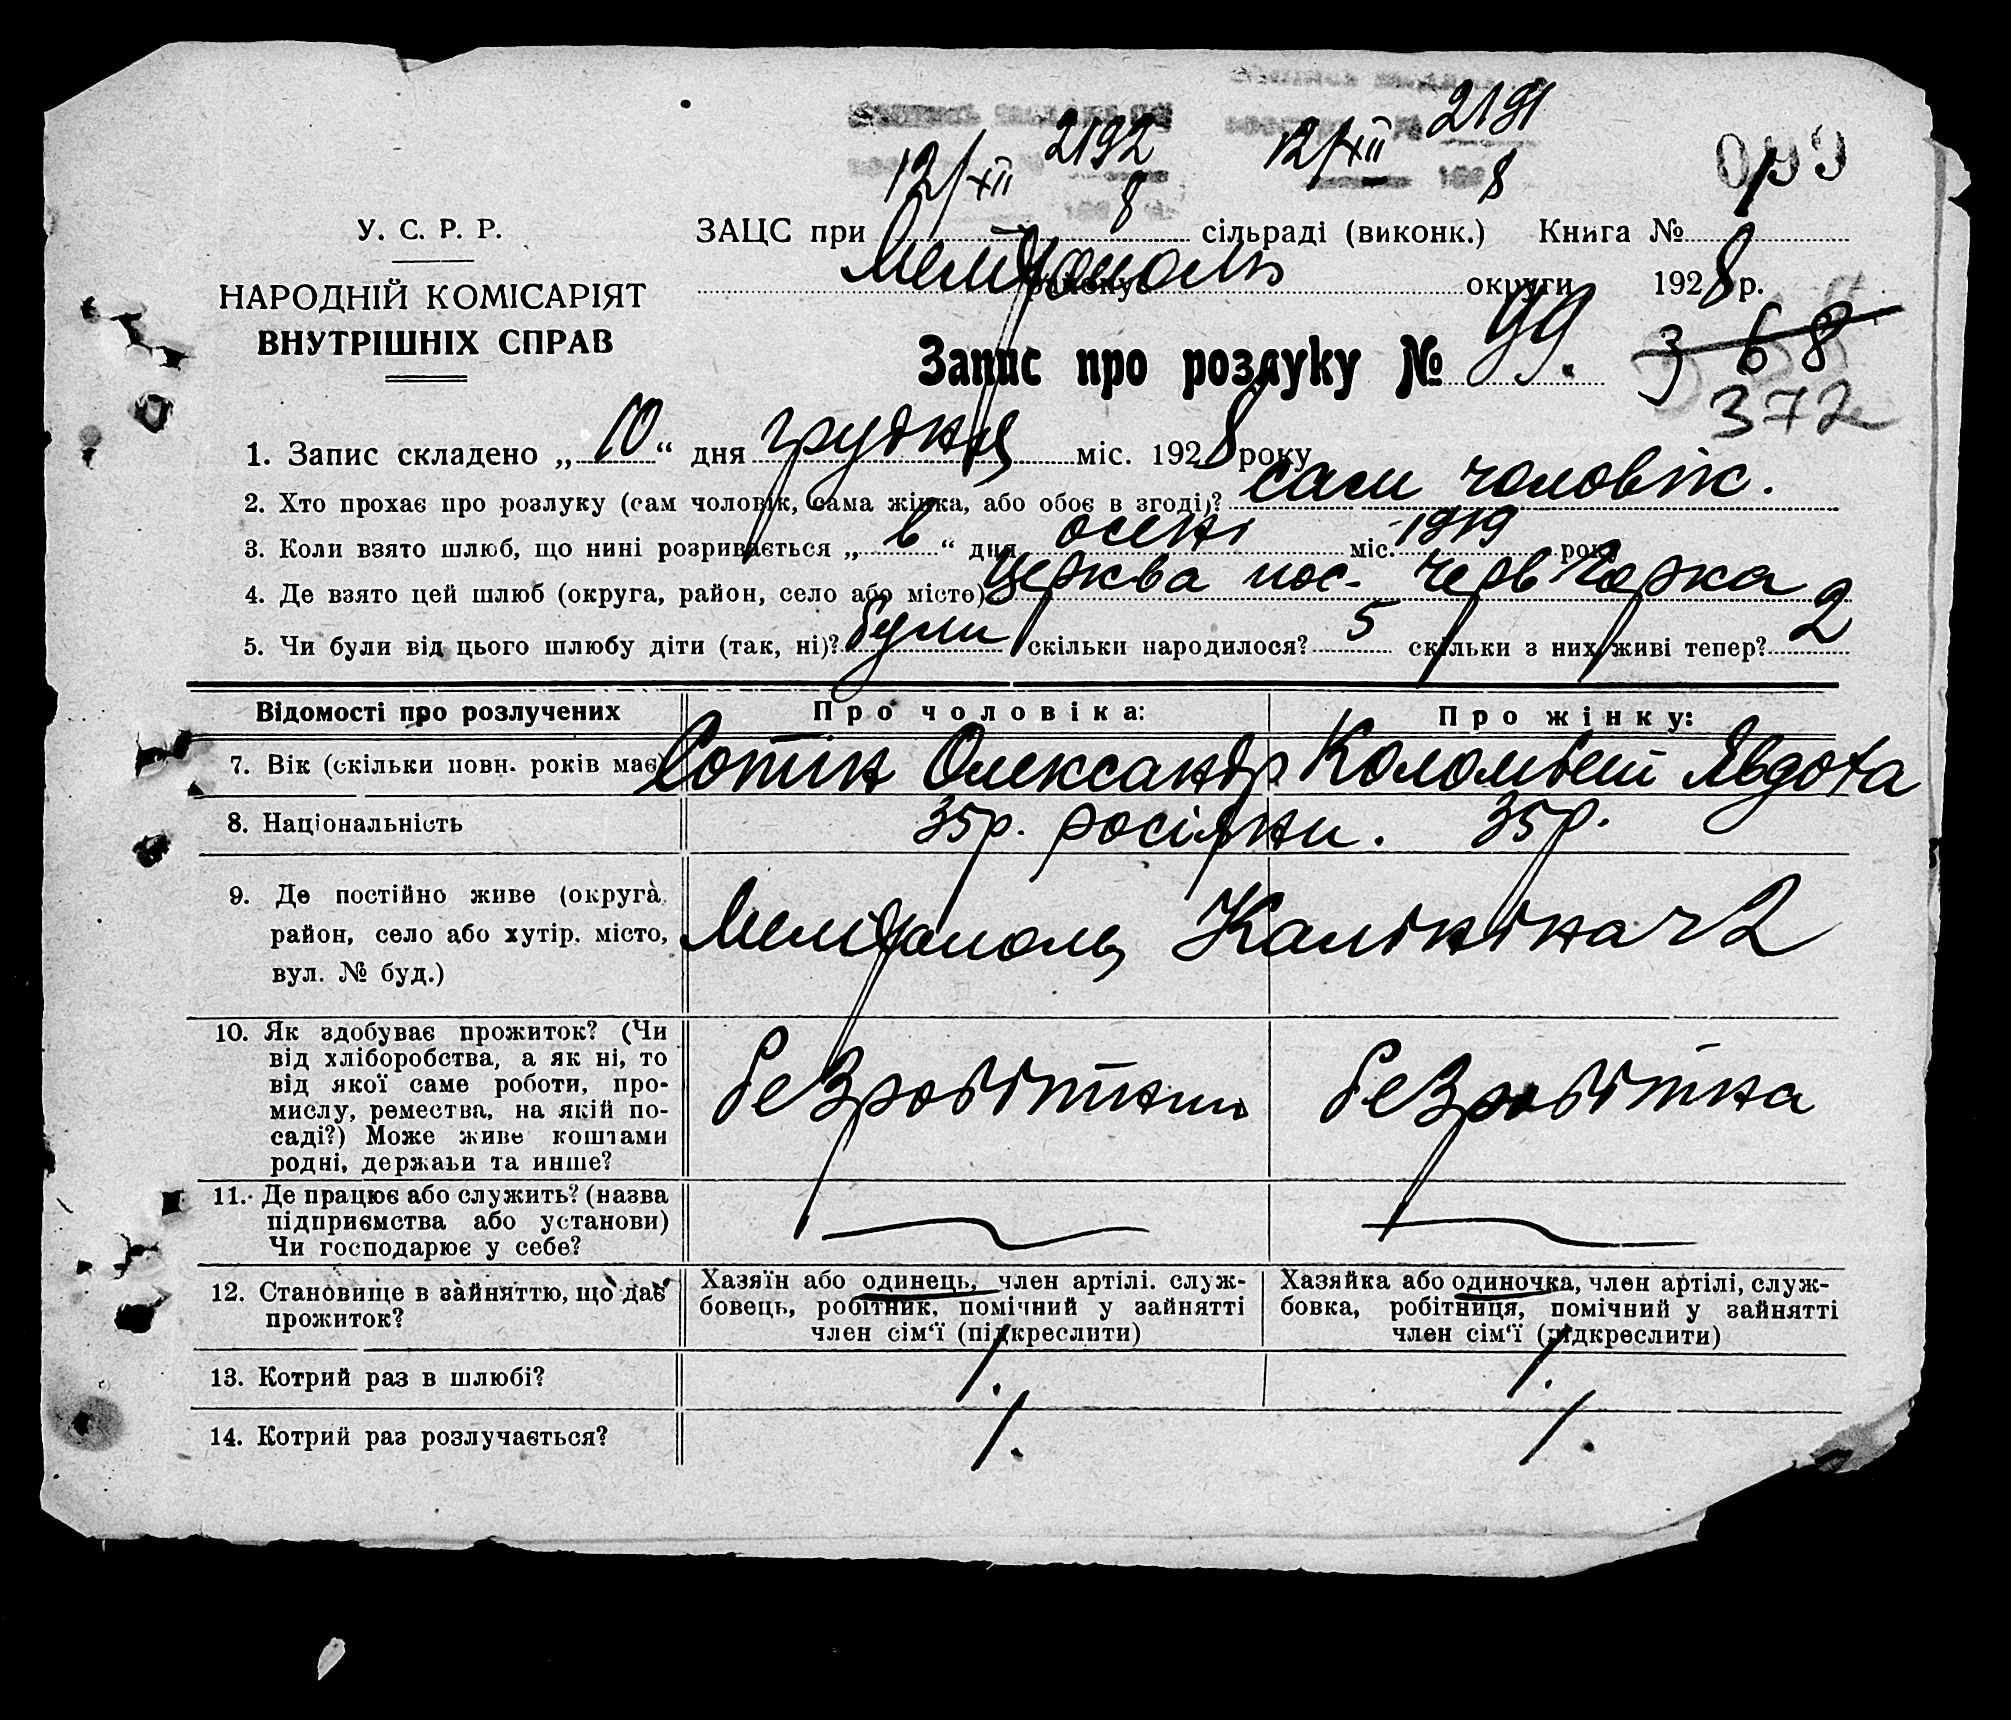 12/XII 2192 8
12/XII 2191 8
У. С. Р. Р.
НАРОДНІЙ КОМІСАРІЯТ
ВНУТРІШНІХ СПРАВ
ЗАЦС при сільраді (виконк.) Книга № 1
Мелітополь округи 1928 р.
Запис про розлуку № 99.
368
372
1. Запис складено „10“ дня грудня міс. 1928 року
2. Хто прохає про розлуку (сам чоловік, сама жінка, або обоє в згоді)? сам чоловік.
3. Коли взято шлюб, що нині розривається „в“ дня осені міс. 1919 року
4. Де взято цей шлюб (округа, район, село або місто) церква пос.
5. Чи були від цього шлюбу діти (так, ні)? були скільки народилося? 5 скільки з них живі тепер? 2
Відомості про розлучених Про чоловіка: Про жінку:
7. Вік (скільки повн. років має Сотін Олександр Коломієць Явдоха
8. Національність 35р. росіяни. 35р.
9. Де постійно живе (округа,
район, село або хутір, місто,
вул. № буд.)
Мелітополь Калініна ч 2
10. Як здобуває прожиток? (Чи
від хліборобства, а як ні, то
від якої саме роботи, про-
мислу, ремества, на якій по-
саді?) Може живе коштами
родні, держави та инше?
безробітний безробітна
11. Де працює або служить? (назва
підприємства або установи)
Чи господарює у себе?
12. Становище в зайняттю, що дає
прожиток?
Хазяїн або одинець, член артілі. служ-
бовець, робітник, помічний у зайнятті
член сім‘ї (підкреслити)
Хазяйка або одиночка, член артілі, служ-
бовка, робітниця, помічний у зайнятті
член сім‘ї (підкреслити)
13. Котрий раз в шлюбі? 1. 1.
14. Котрий раз розлучається? 1. 1.